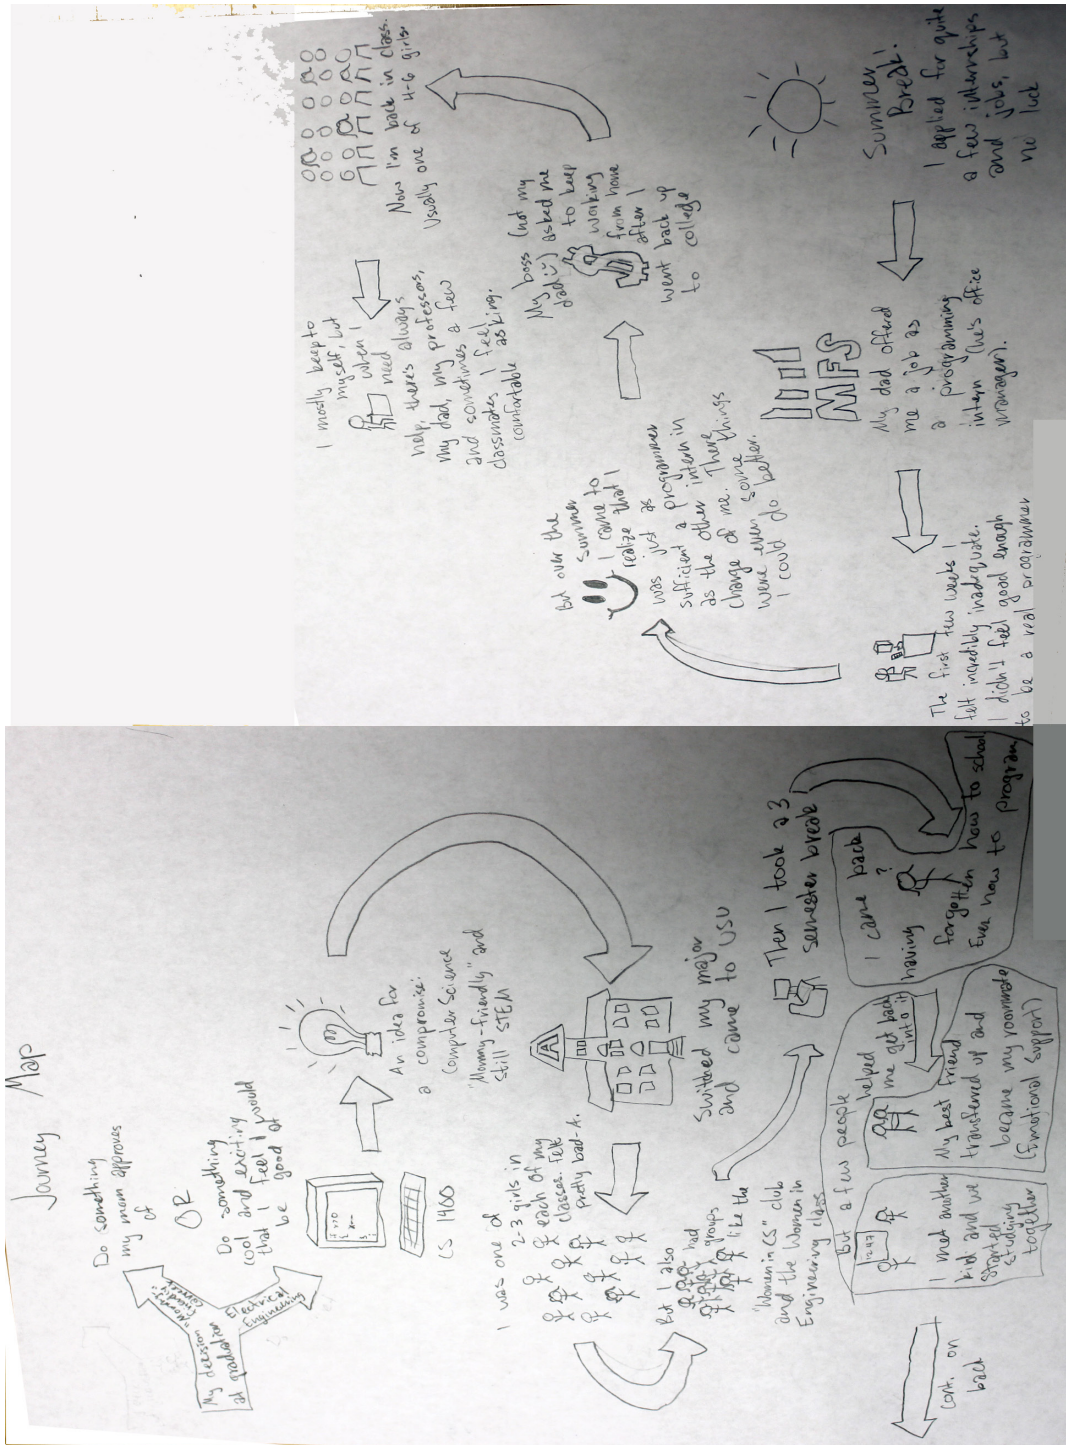 Journey Map
My decision
at graduation
"Mommy-
friendly"
career
Electrical
Engineering
Do something
my mom approves
of
OR
Do something
cool and exciting
that I feel I would
be good at
CS 1400
An idea for
a compromise:
Computer Science
"Mommy-friendly" and
still STEM
A
Switched my major
and came to USU
I was one of
2-3 girls in
each of my
classes. Felt
pretty bad-A.
But I also
had
groups
like the
"Women in CS" club
and the Women in
Engineering class
Then I took a 3
semester break
I came back
having
?
forgotten how to school
Even how to program
But a few people
helped
me get back
into it
My best friend
transferred up and
became my roommate
(Emotional Support)
I met another
kid and we
started
studying
together
cont. on
back
Summer
Break!
I applied for quite
a few internships
and jobs, but
no luck
My dad offered
me a job as
a programming
intern (he's office
manager).
MFS
The first few weeks I
felt incredibly inadequate.
I didn't feel good enough
to be a real programmer
But over the
summer
I came to
realize that I
was just as
sufficient a programmer
as the other intern in
charge of me. There
were even some things
I could do better.
My boss (not my
dad :)) asked me
to keep
working
from home
after I
went back up
to college
Now I'm back in class.
Usually one of 4-6 girls.
I mostly keep to
myself, but
when I
need
help, there's always
my dad, my professors,
and sometimes a few
classmates I feel
comfortable asking.